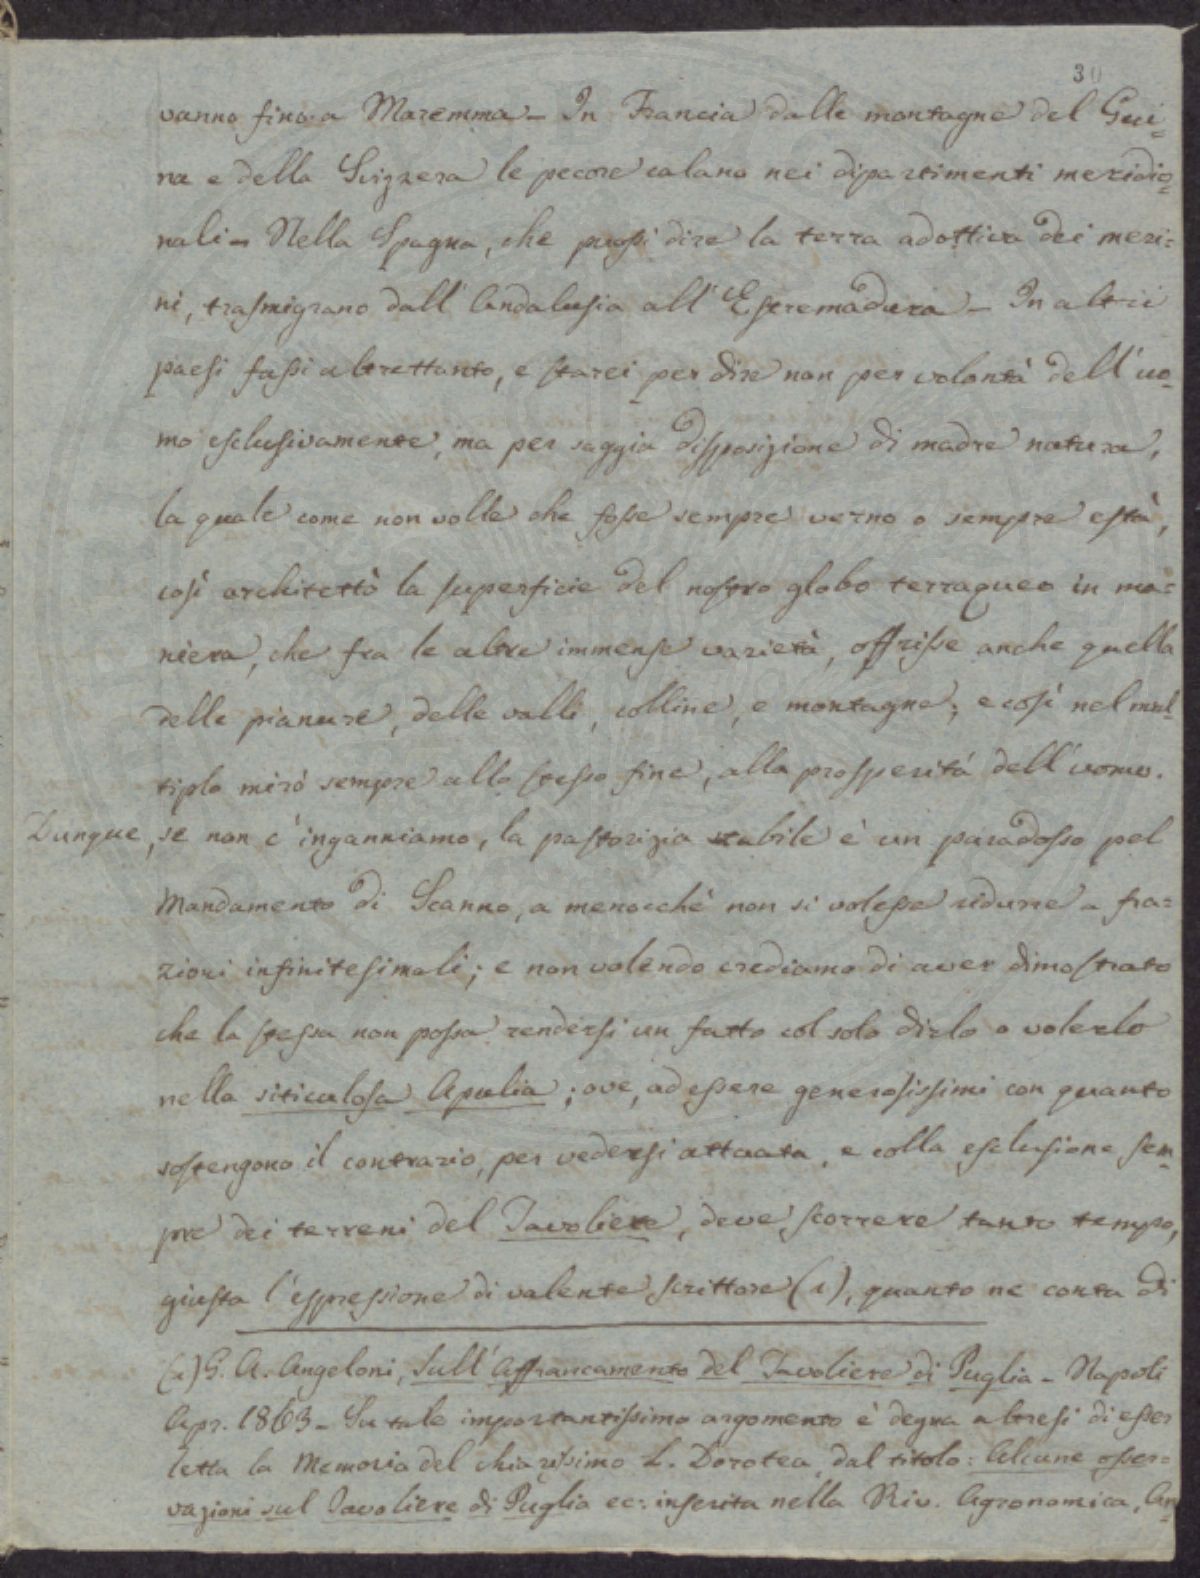 30
vanno fino a Maremma - In Francia dalle montagne del
na e della Svizzera le pecore calano nei dipartimenti meridio=
nali - Nella Spagna, che puossi dire la terra adottiva dei meri=
ni, trasmigrano dall'Andalusia all'Estremadura - In altri
paesi fassi altrettanto, e starei per dire non per volontà dell'uo=
mo esclusivamente, ma per saggia disposizione di madre natura,
la quale come non volle che fosse sempre verno o sempre està,
così architettò la superficie del nostro globo terraqueo in ma=
niera, che fra le altre immense varietà, offrisse anche quella
delle pianure, delle valli, colline, e montagne; e così nel mul=
tiplo mirò sempre allo stesso fine, alla prosperità dell'uomo.
Dunque, se non c'inganniamo, la pastorizia stabile è un paradosso pel
Mandamento di Scanno, a menocchè non si volesse ridurre a fra=
zioni infinitesimali; e non volendo crediamo di aver dimostrato
che la stessa non possa rendersi un fatto col solo dirlo o volerlo
nella siticulosa Apulia; ove, ad essere generosissimi con quanto
sostengono il contrario, per vedersi attuata, e colla esclusione sem=
pre dei terreni del Tavoliere, deve scorrere tanto tempo,
giusta l'espressione di valente scrittore (1), quanto ne conta di
(1) G. A. Angeloni, Sull'Affrancamento del Tavoliere di Puglia - Napoli
Apr. 1863 - Su tale importantissimo argomento è degna altresì di esser
letta la Memoria del chiarissimo L. Dorotea, dal titolo: Alcune osser=
vazioni sul Tavoliere di Puglia ec: inserita nella Riv. Agronomica, An=